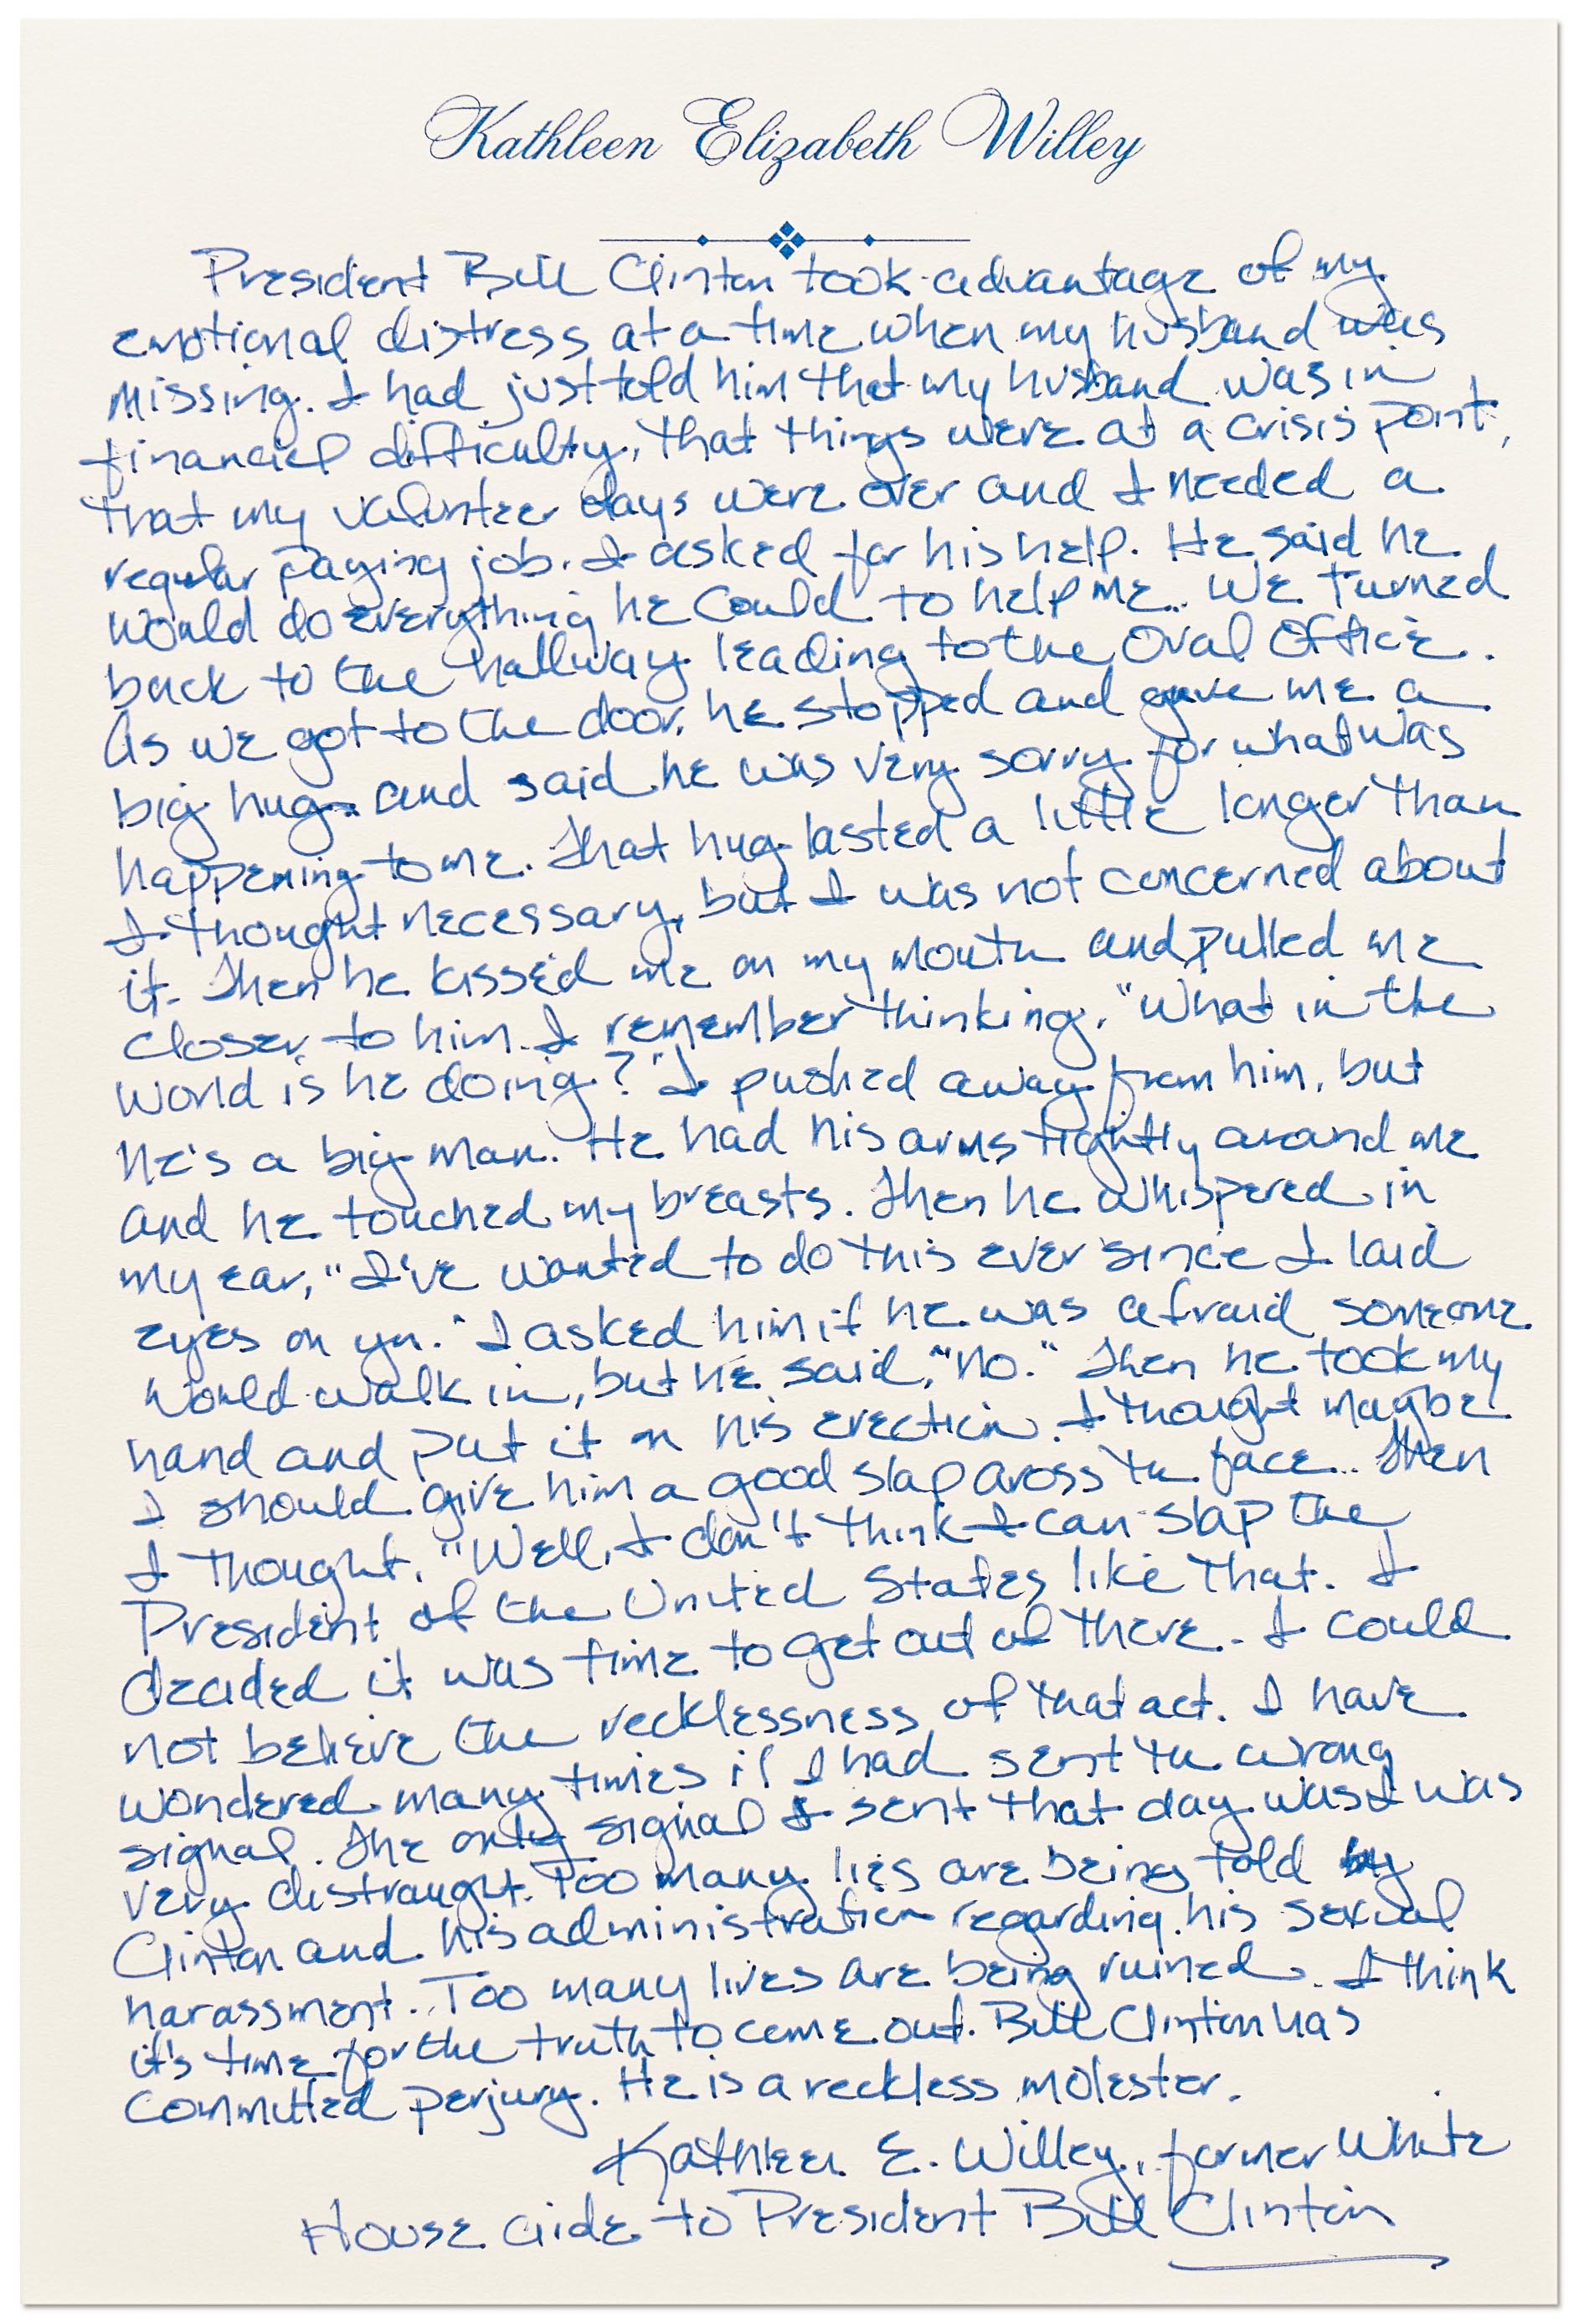 Kathleen Elizabeth Willey
President Bill Clinton took advantage of my
emotional distress at a time when my husband was
missing. I had just told him that my husband was in
financial difficulty, that things were at a crisis point,
that my volunteer days were over and I needed a
regular paying job. I asked for his help. He said he
would do everything he could to help me. We turned
back to the hallway leading to the Oval Office.
As we got to the door, he stopped and gave me a
big hug and said he was very sorry for what was
happening to me. That hug lasted a little longer than
I thought necessary, but I was not concerned about
it. Then he kissed me on my mouth and pulled me
closer to him. I remember thinking, "What in the
world is he doing?" I pushed away from him, but
he's a big man. He had his arms tightly around me
and he touched my breasts. Then he whispered in
my ear, "I've wanted to do this ever since I laid
eyes on you." I asked him if he was afraid someone
would walk in, but he said, "No." Then he took my
hand and put it on his erection. I thought maybe
I should give him a good slap aross the face. Then
I thought, "Well, I don't think I can slap the
President of the United States like that. I
decided it was time to get out of there. I could
not believe the recklessness of that act. I have
wondered many times if I had sent the wrong
signal. The only signal I sent that day was I was
very distraught. Too many lies are being told by
Clinton and his administration regarding his sexual
harassment. Too many lives are being ruined. I think
it's time for the truth to come out. Bill Clinton has
committed perjury. He is a reckless molester.
Kathleen E. Willey, former White
House aide to President Bill Clinton